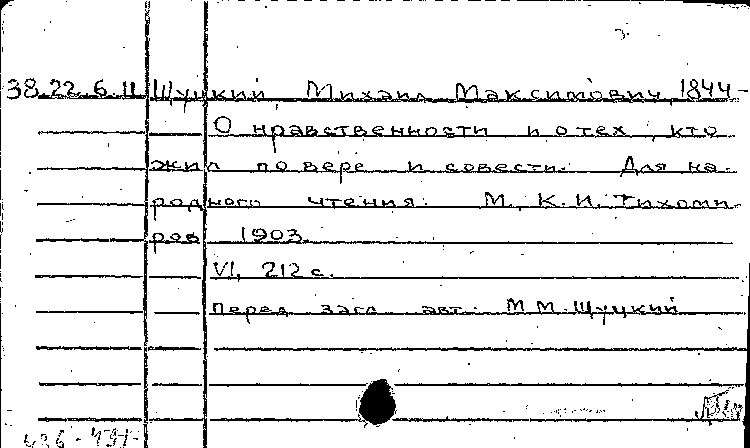 38.22.6.11 Щуцкий, Михаил Максимович, 1844-
О нравственности и о тех, кто
жил по вере и совести. Для на-
родного чтения. М., К.И. Тихоми-
ров, 1903.
VI, 212 с.
Перед загл. авт.: М.М. Щуцкий